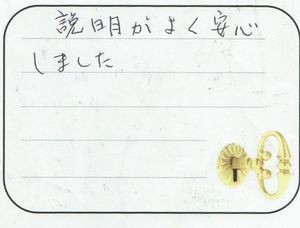 説明がよく安心
しました